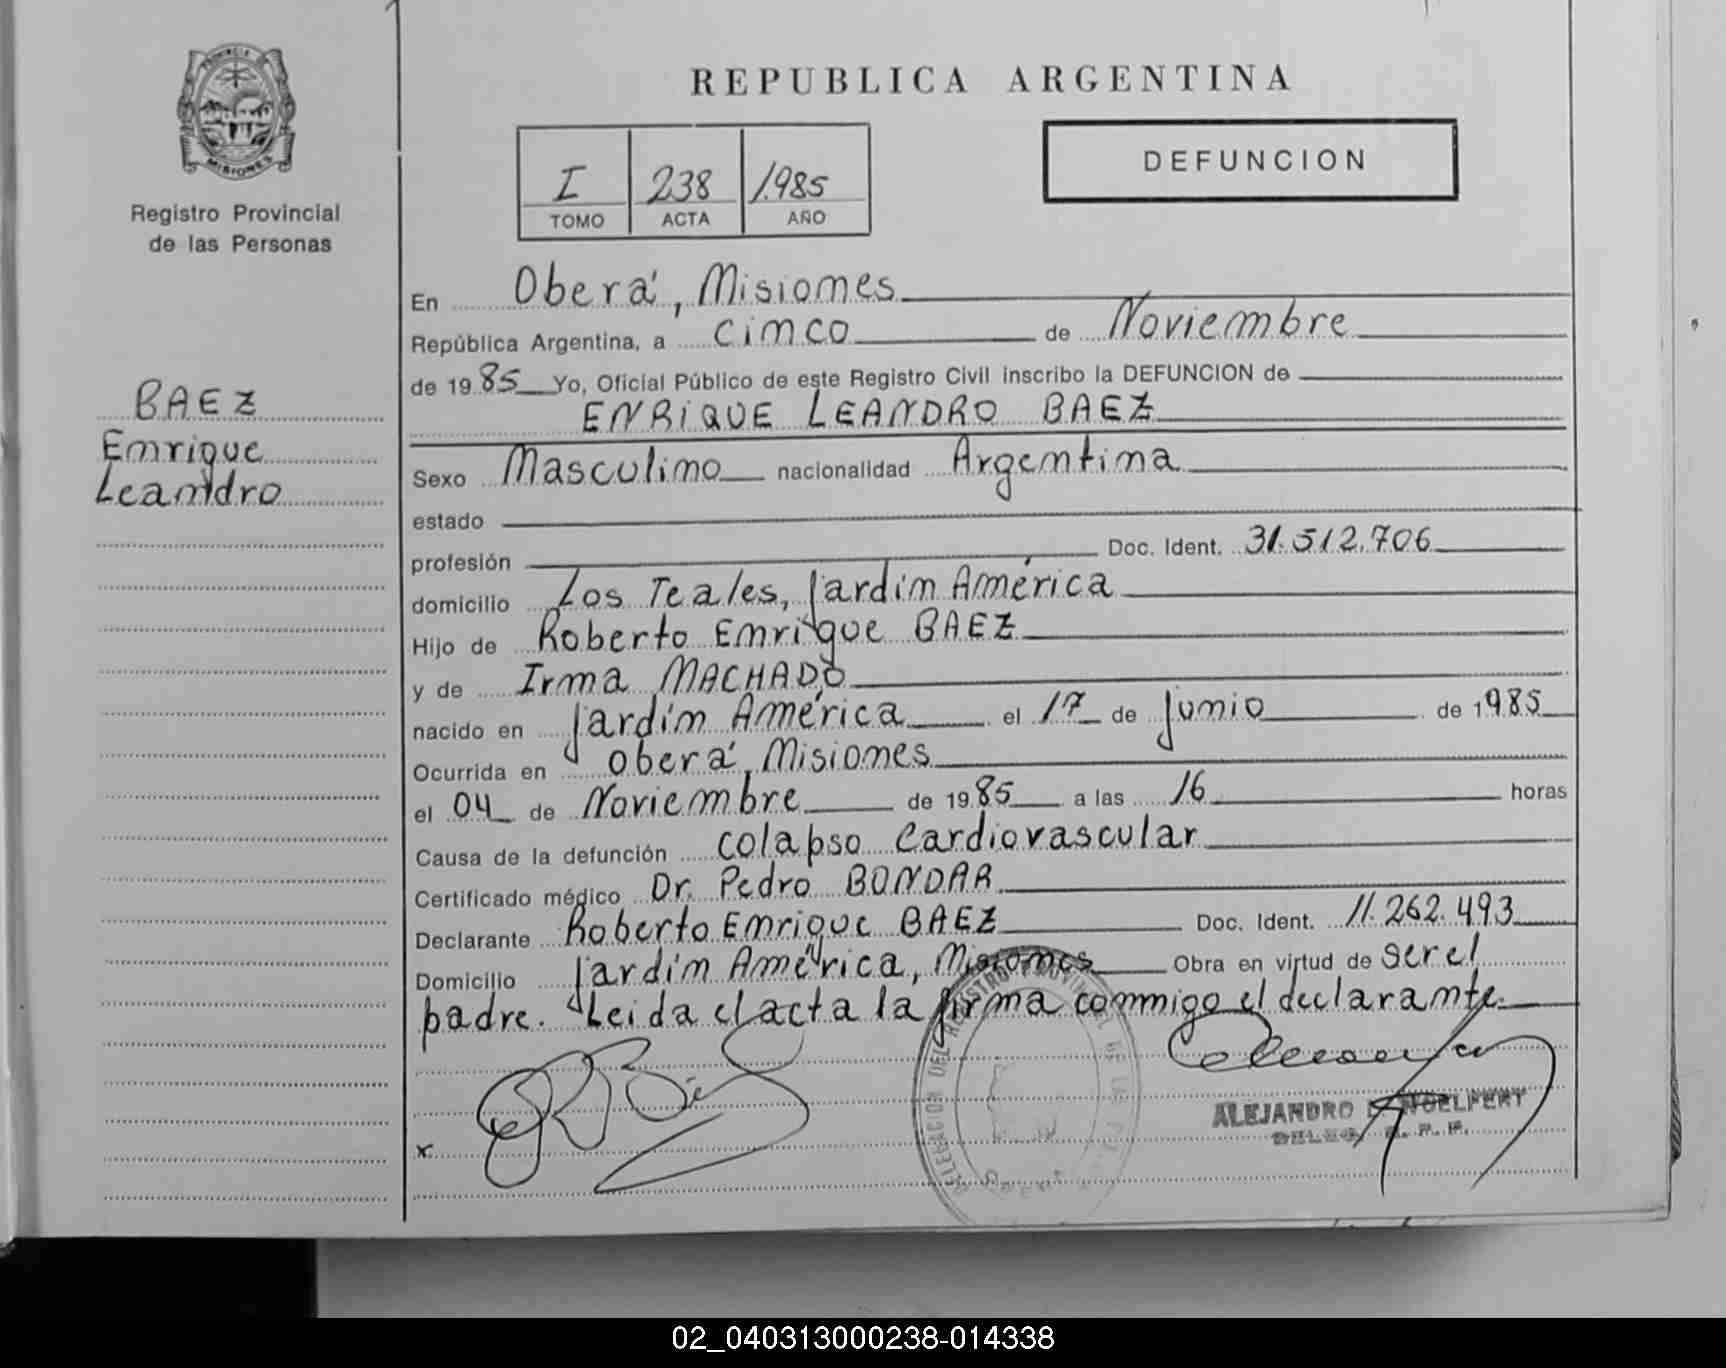 PROVINCIA DE
MISIONES
Registro Provincial
de las Personas
BAEZ
Enrique
Leandro
REPUBLICA ARGENTINA
I 238 1.985
TOMO ACTA AÑO
DEFUNCION
En Oberá, Misiones
República Argentina, a cinco de Noviembre
de 1985 Yo, Oficial Público de este Registro Civil inscribo la DEFUNCION de
ENRIQUE LEANDRO BAEZ
Sexo Masculino nacionalidad Argentina
estado
profesión Doc. Ident. 31.512.706
domicilio Los Teales, Jardín América
Hijo de Roberto Enrique BAEZ
y de Irma MACHADO
nacido en Jardín América el 17 de junio de 1985
Ocurrida en Oberá, Misiones
el 04 de Noviembre de 1985 a las 16 horas
Causa de la defunción colapso Cardiovascular
Certificado médico Dr. Pedro BONDAR
Declarante Roberto Enrique BAEZ Doc. Ident. 11.262.493
Domicilio Jardín América, Misiones Obra en virtud de ser el
padre. Leida el acta la firma conmigo el declarante.
x
DELEGACION DEL REGISTRO PROVINCIAL DE LAS
ALEJANDRO
02_040313000238-014338